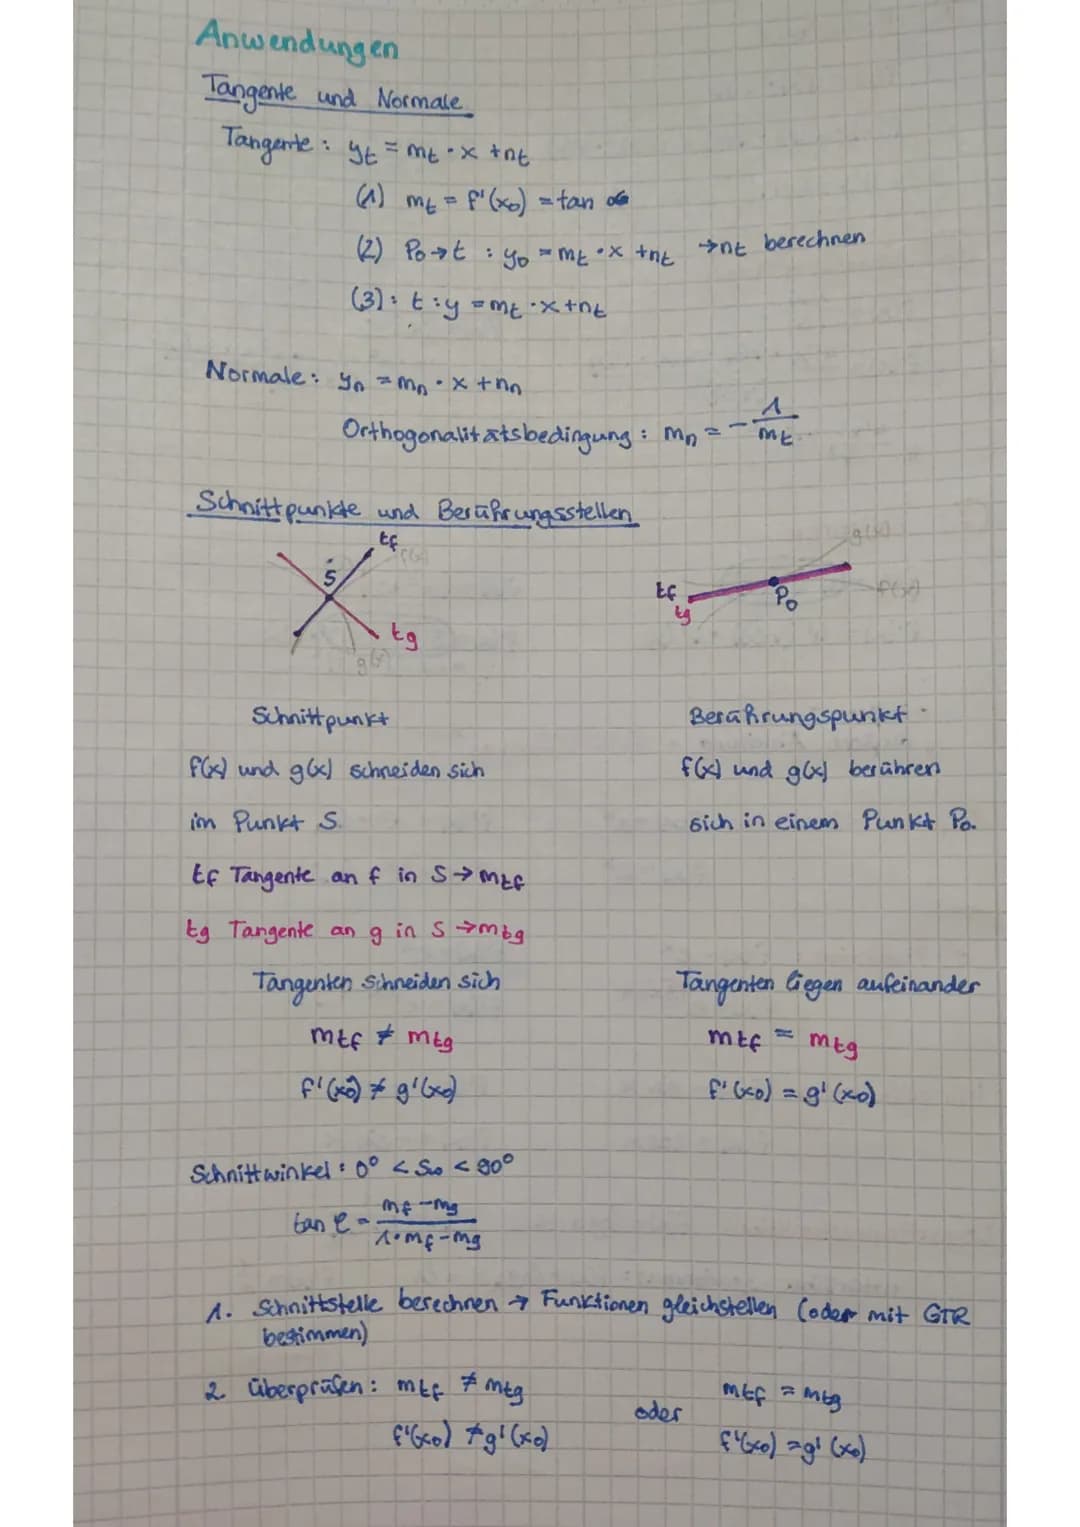 Anwendungen
Tangente und Normale
Tangente : yt = mt · x + nt
(1) mt = f'(x0) = tan α
(2) P0 → t : y0 = mt · x + nt → nt berechnen
(3): t : y = mt · x + nt
Normale : yn = mn · x + nn
Orthogonalitätsbedingung : mn = - 1/mt
Schnittpunkte und Berührungsstellen
tf f(x) S tg g(x)
tf tg P0 g(x) f(x)
Schnittpunkt
f(x) und g(x) schneiden sich
im Punkt S.
tf Tangente an f in S → mtf
tg Tangente an g in S → mtg
Tangenten schneiden sich
mtf ≠ mtg
f'(x0) ≠ g'(x0)
Berührungspunkt
f(x) und g(x) berühren
sich in einem Punkt P0.
Tangenten liegen aufeinander
mtf = mtg
f'(x0) = g'(x0)
Schnittwinkel : 0° < < 90°
tan φ = mf - mg / 1 · mf - mg
1. Schnittstelle berechnen → Funktionen gleichstellen (oder mit GTR
bestimmen)
2. überprüfen : mtf ≠ mtg oder mtf = mtg
f'(x0) ≠ g'(x0) f'(x0) = g'(x0)